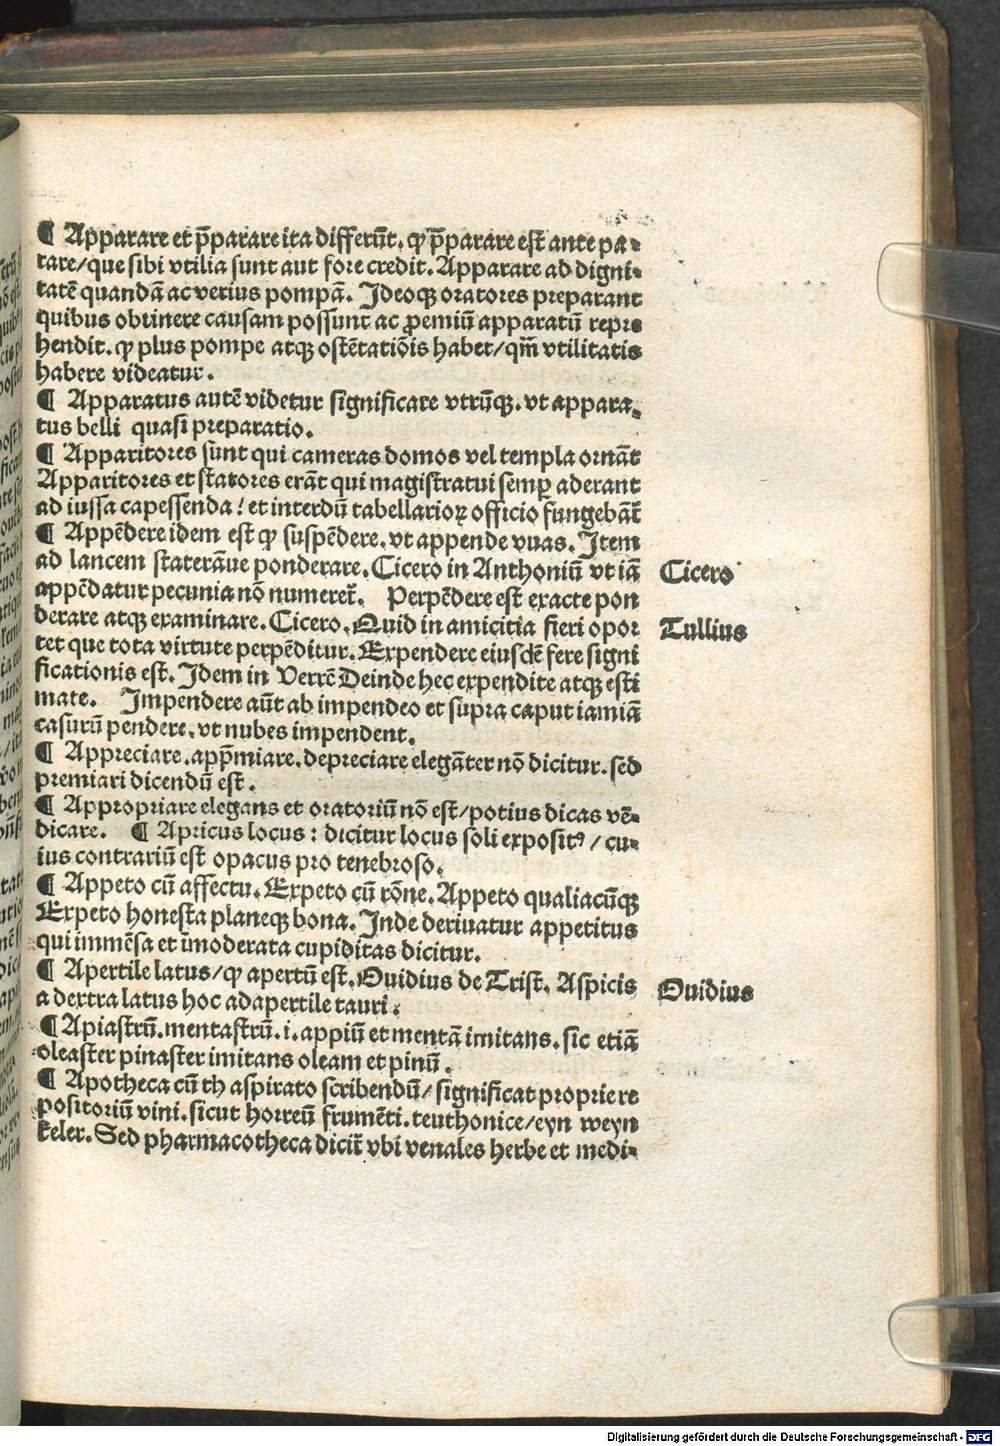 ¶ Apparare et p̄parare ita differūt. qꝙ p̄parare est ante pa⸗
rare/que sibi vtilia sunt aut fore credit. Apparare ad digni⸗
tatē quandā ac verius pompā. Ideoqꝫ oratores preparant
quibus obtinere causam possunt ac ꝓemiū apparatū repre
hendit. ꝙ plus pompe atqꝫ ostētatiōis habet/qm̄ vtilitatis
habere videatur.
¶ Apparatus autē videtur significare vtrūqꝫ. vt appara⸗
tus belli quasi preparatio.
¶ Apparitores sunt qui cameras domos vel templa ornāt
Apparitores et statores erāt qui magistratui semꝑ aderant
ad iussa capessenda! et interdū tabellarioꝝ officio fungebāt̄
¶ Appēdere idem est ꝙ suspēdere. vt appende vuas. Item
ad lancem staterāue ponderare. Cicero in Anthoniū vt iā
appēdatur pecunia nō numeret̄. Perpēdere est exacte pon
derare atqꝫ examinare. Cicero. Quid in amicitia fieri opor
tet que tota virtute perpēditur. Expendere eiusdē fere signi
ficationis est. Idem in Verrē Deinde hec expendite atqꝫ esti
mate. Impendere aūt ab impendeo et supra caput iamiā
casurū pendere. vt nubes impendent.
¶ Appreciare. app̄miare. depreciare elegāter nō dicitur. sed
premiari dicendū est.
¶ Appropriare elegans et oratoriū nō est/potius dicas vē⸗
dicare. ¶ Apricus locus: dicitur locus soli expositꝰ/cu⸗
ius contrariū est opacus pro tenebroso.
¶ Appeto cū affectu. Expeto cū rōne. Appeto qualiacūqꝫ
Expeto honesta planeqꝫ bona. Inde deriuatur appetitus
qui immēsa et īmoderata cupiditas dicitur.
¶ Apertile latus/ꝙ apertū est. Ouidius de Trist. Aspicis
a dextra latus hoc adapertile tauri.
¶ Apiastrū. mentastrū. i. appiū et mentā imitans. sic etiā
oleaster pinaster imitans oleam et pinū.
¶ Apotheca cū th aspirato scribendū/significat proprie re
positoriū vini. sicut horreū frumēti. teuthonice/eyn weyn
keler. Sed pharmacotheca dicit̄ vbi venales herbe et medi⸗
Cicero
Tullius
Ouidius
Digitalisierung gefördert durch die Deutsche Forschungsgemeinschaft - DFG